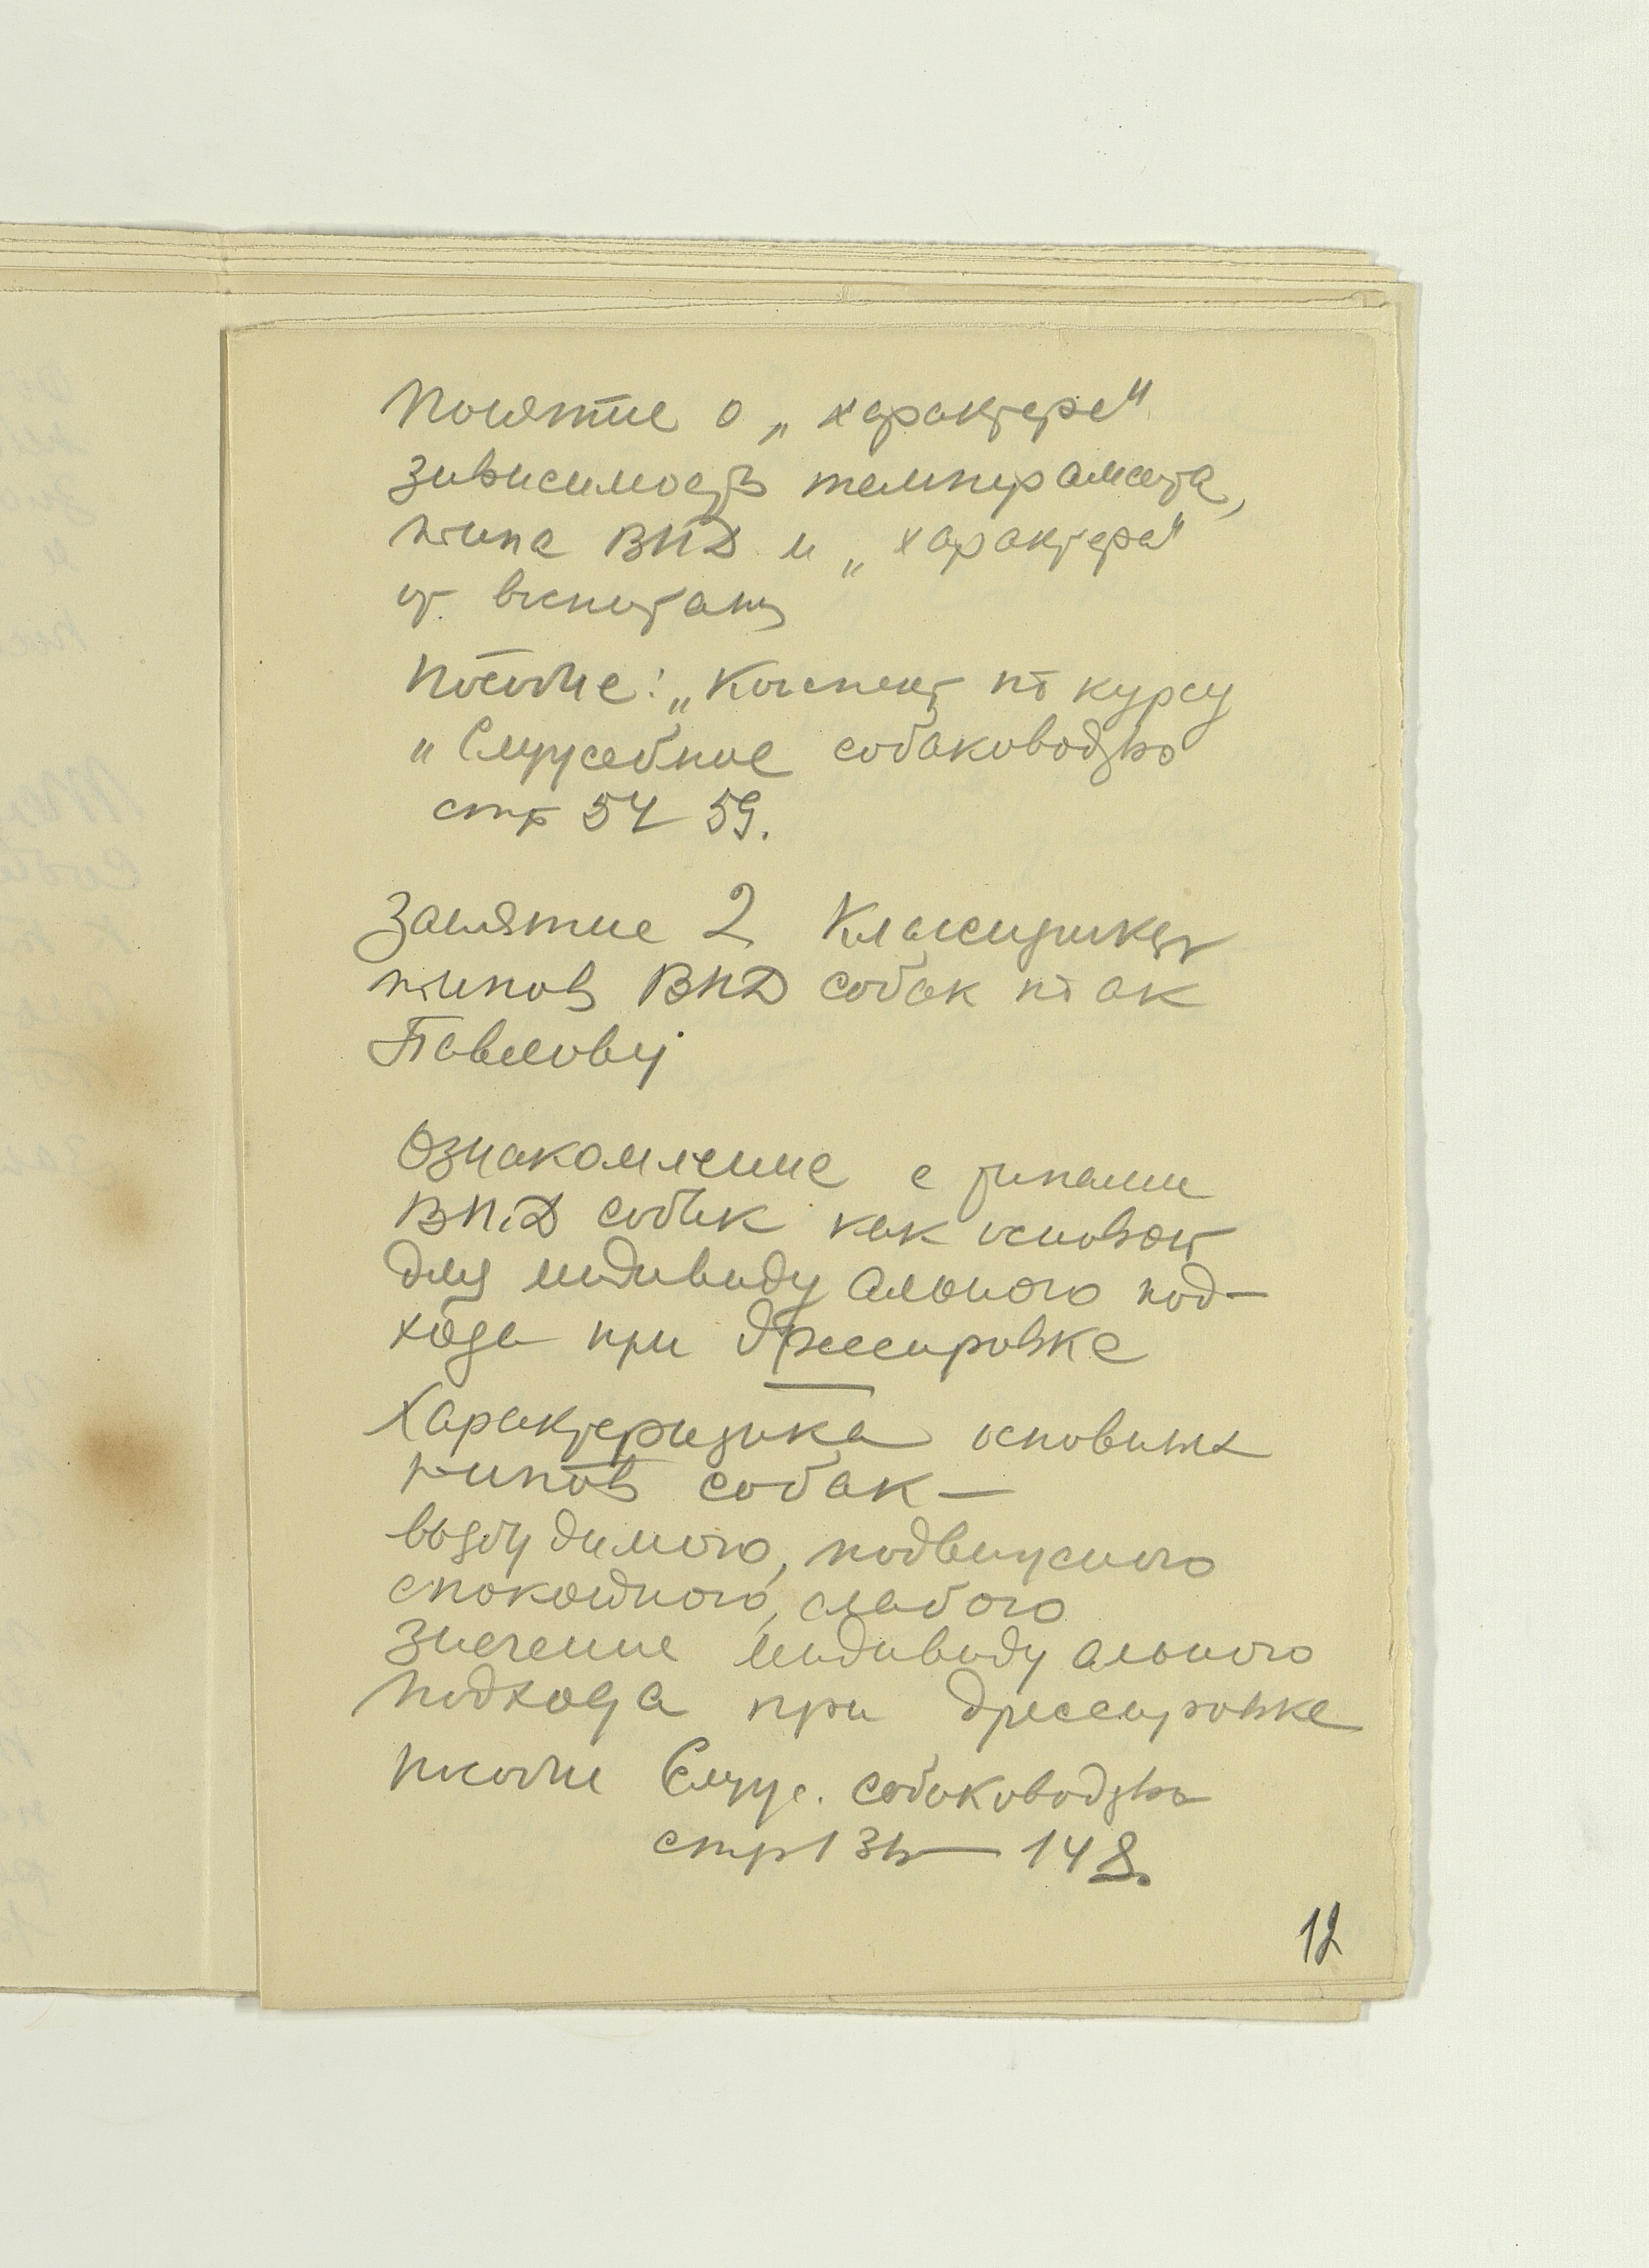 Понятие о „характере"
зависимость темперамента,
типа ВНД и „характера"
от воспитания
Пособие: „Конспект по курсу
„Служебное собаководство
стр 54 59.
Занятие 2 Классификация
типов ВНД собак по ак
Павлову
Ознакомление с типами
ВНД собак как основой
для индивидуального под-
хода при дрессировке
Характеристика основных
типов собак —
возбудимого, подвижного
спокойного, слабого
Значение индивидуального
подхода при дрессировке
пособие Служ. собаководство
стр — 148.
12